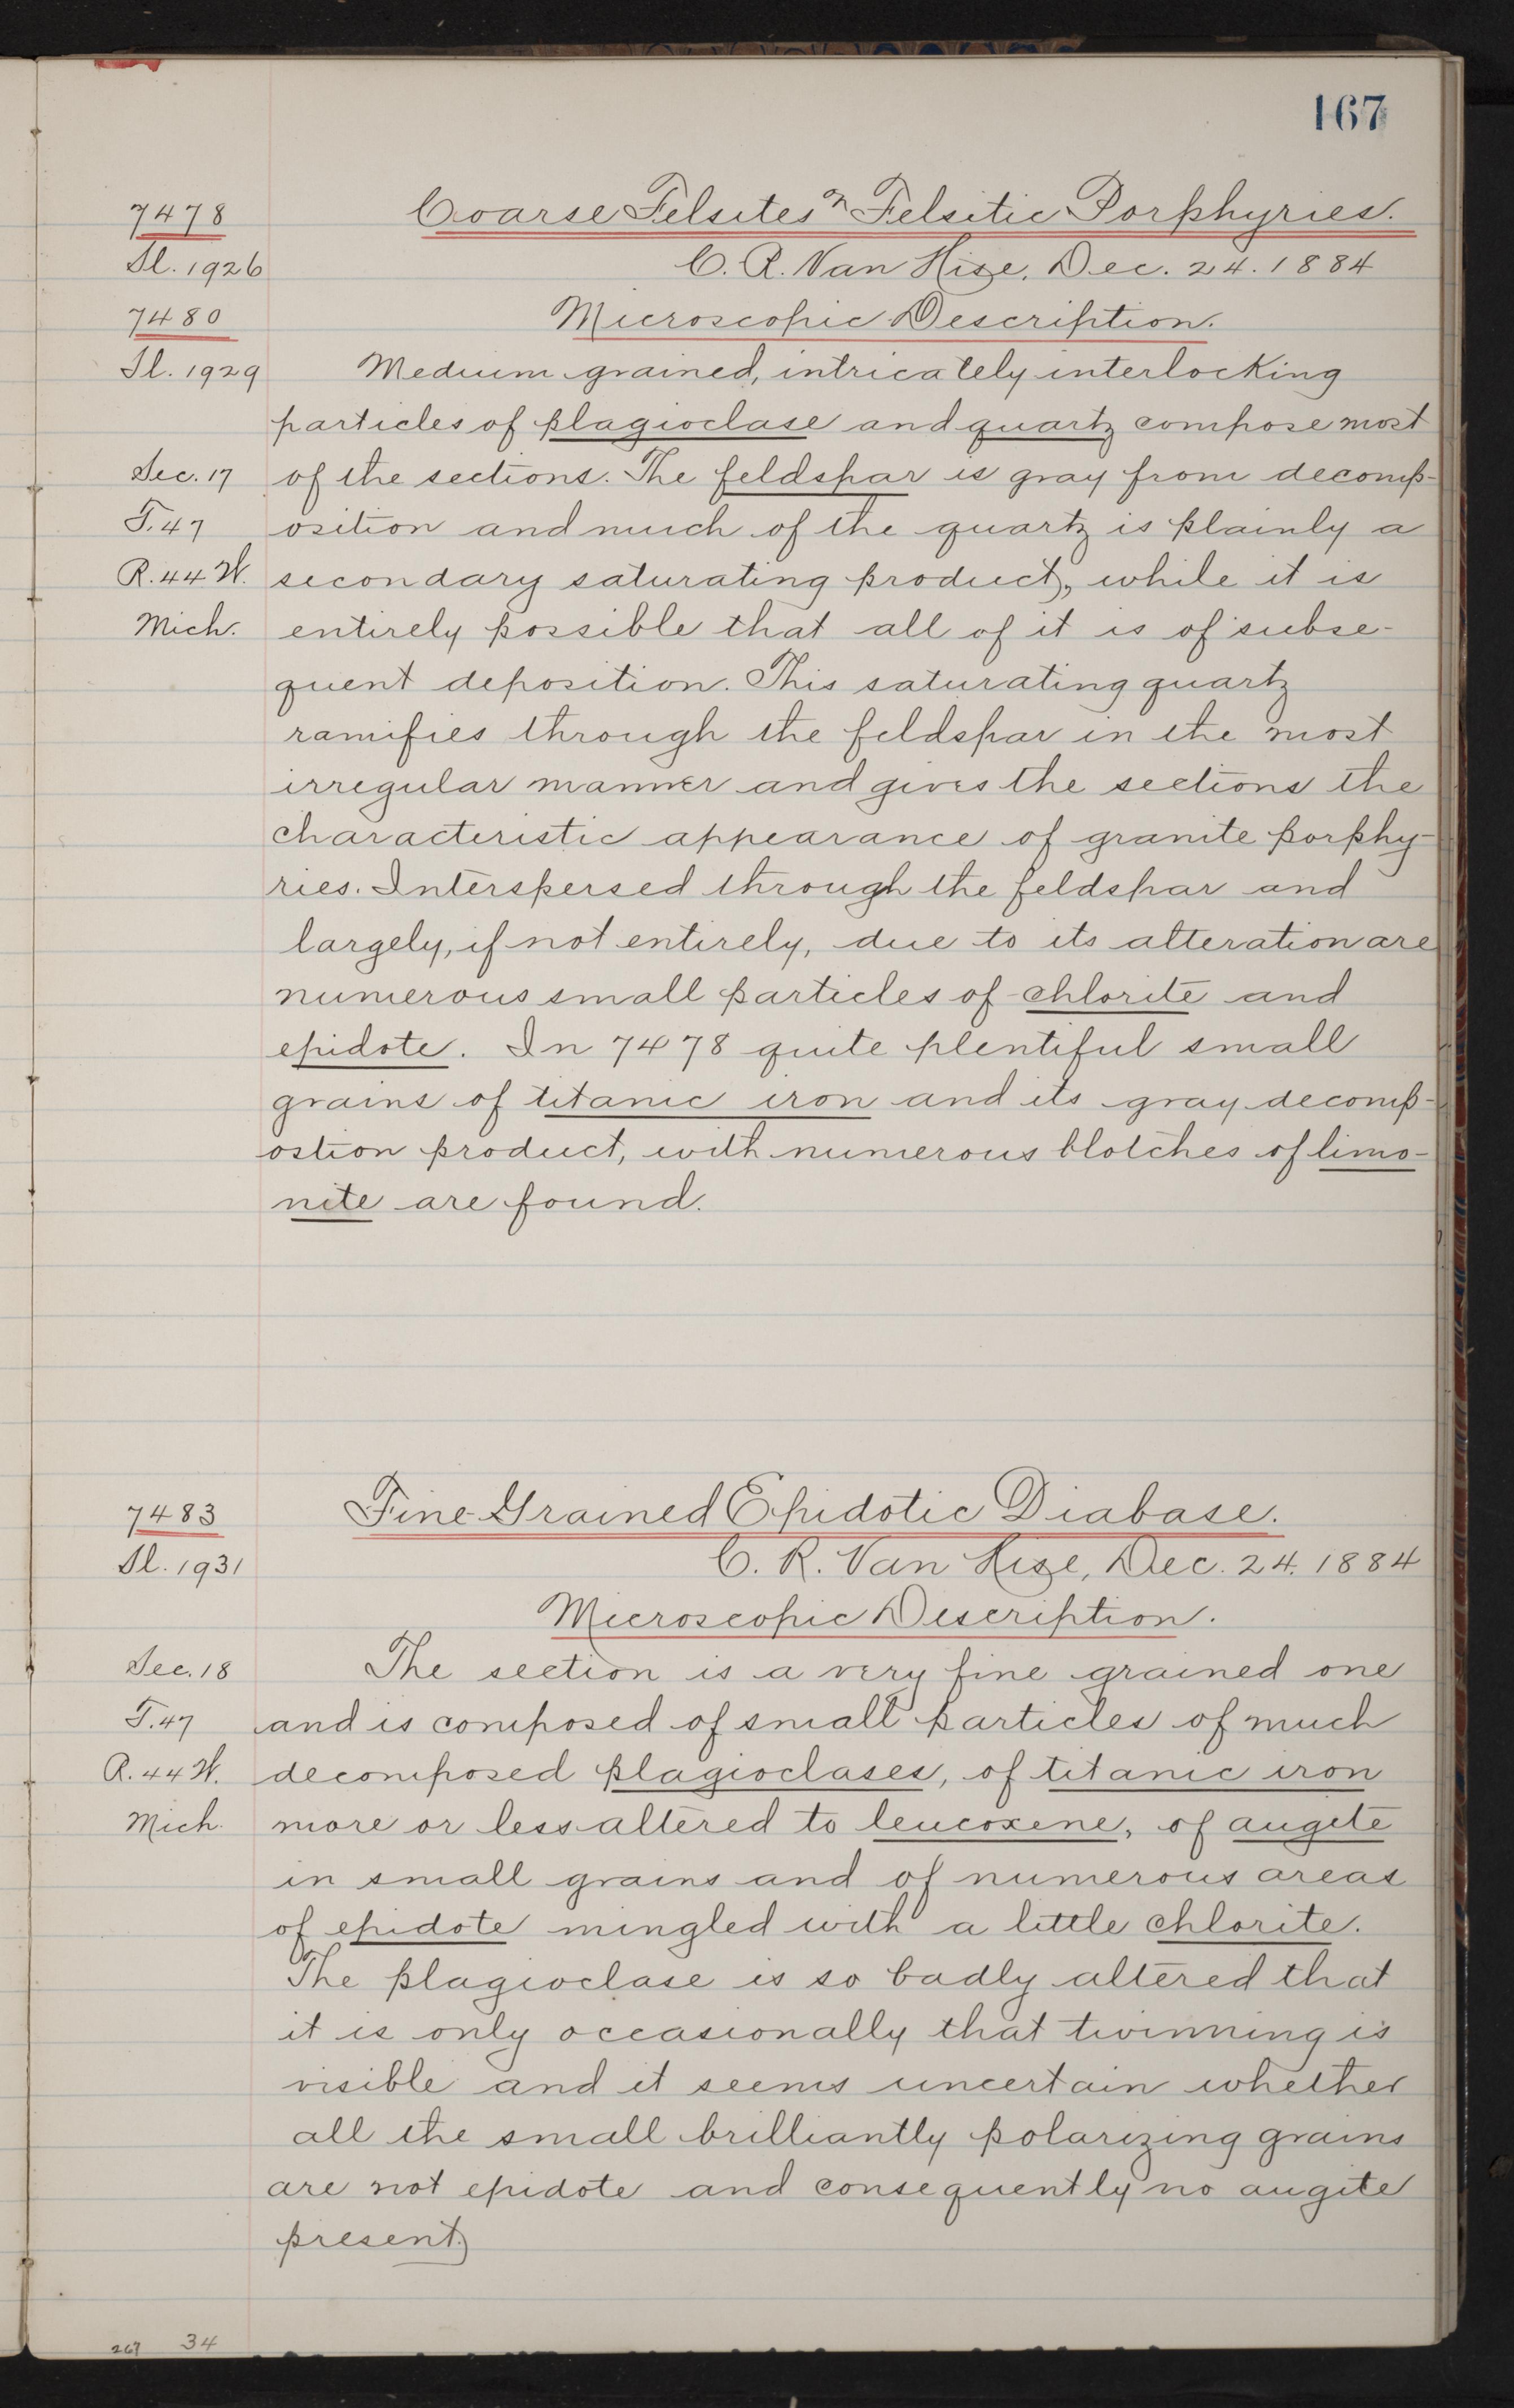 167
7478
Coarse Felsites or Felsitic Porphyries.
Sl. 1926
C. R. Van Hise, Dec. 24. 1884
7480
Microscopic Description.
Sl. 1929
Medium grained, intricately interlocking
particles of plagioclase and quartz compose most
Sec. 17
of the sections. The feldspar is gray from decomp-
T. 47
osition and much of the quartz is plainly a
R. 44 W.
secondary saturating product, while it is
Mich.
entirely possible that all of it is of subse-
quent deposition. This saturating quartz
ramifies through the feldspar in the most
irregular manner and gives the sections the
characteristic appearance of granite porphy-
ries. Interspersed through the feldspar and
largely, if not entirely, due to its alteration are
numerous small particles of chlorite and
epidote. In 7478 quite plentiful small
grains of titanic iron and its gray decomp-
ostion product, with numerous blotches of limo-
nite are found.
7483
Fine Grained Epidotic Diabase.
Sl. 1931
C. R. Van Hise, Dec. 24. 1884
Microscopic Description.
Sec. 18
The section is a very fine grained one
T. 47
and is composed of small particles of much
R. 44 W.
decomposed plagioclases, of titanic iron
Mich.
more or less altered to leucoxene, of augite
in small grains and of numerous areas
of epidote mingled with a little chlorite.
The plagioclase is so badly altered that
it is only occasionally that twinning is
visible and it seems uncertain whether
all the small brilliantly polarizing grains
are not epidote and consequently no augite
present.
267 34